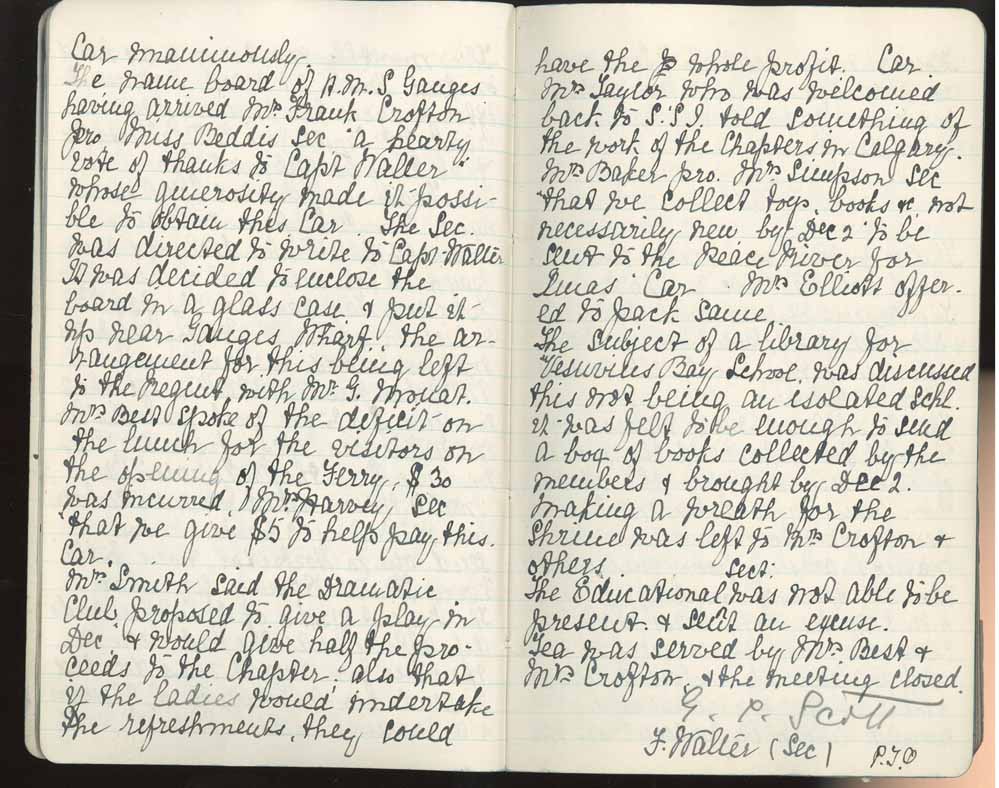 Car unanimously.
The name board of H.M.S Ganges
having arrived Mrs Frank Crofton
pro Miss Beddis Sec a hearty
vote of thanks to Capt Walter
whose generosity made it possi-
ble to obtain this Car. The Sec.
was directed to write to Capt Walter
It was decided to enclose the
board in a glass case & put it
up near Ganges Wharf. the ar-
rangement for this being left
to the Regent with Mr G. Mouat.
Mrs Best spoke of the deficit on
the lunch for the visitors on
the opening of the Ferry, $30
was incurred, Mrs Harvey Sec
that we give $5 to help pay this.
Car.
Mrs Smith said the Dramatic
Club proposed to give a play in
Dec. & would give half the pro-
ceeds to the Chapter. also that
if the ladies would undertake
the refreshments, they could
have the whole profit. Car.
Mrs Taylor who was welcomed
back to S.S.I. told something of
the work of the Chapters in Calgary.
Mrs Baker pro. Mrs Simpson Sec
that we collect toys, books &. not
necessarily new by Dec 2 to be
sent to the Peace River for
Xmas Car. Mrs Elliots offer-
ed to pack same
The subject of a library for
Vesuvius Bay School, was discussed
this not being an isolated Schl.
it was felt to be enough to send
a box of books collected by the
members & brought by Dec 2.
Making a wreath for the
Shrine was left to Mrs Crofton &
others. Sect.
The Educational was not able to be
present & sent an excuse.
Tea was served by Mrs Best &
Mrs Crofton, & the meeting closed.
G. C. Scott
F. Walter (Sec)
P.T.O